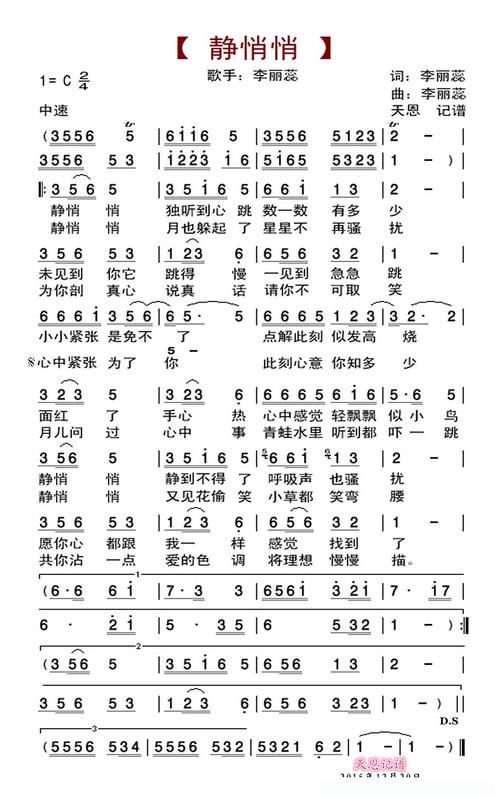 【 静悄悄 】
1= C 2/4
歌手：李丽蕊
词：李丽蕊
曲：李丽蕊
中速
天恩 记谱
(3556 5 | 6115 | 3556 5123 | 2 - |
3556 53 | 1223 16 | 5165 53 | 1 - ) |
|: 356 5 | 3516 | 6616 | 13 |
静悄 悄 独听到心 跳 数一数 有多 少
静悄 悄 月也躲起 了 星星不 再骚 扰
356 53 | 123 6 | 356 32 | 5 - |
未见到 你它 跳得 慢 一见到 急急 跳
为你剖 真心 说真 话 请你不 可取 笑
小小紧张 是免不 了 点解此刻 似发高 烧
5 -
※心中紧张 为了 你 此刻心意 你知多 少
面红 了 手心 热 心中感觉 轻飘飘 似小 鸟
月儿问 过 心中 事 青蛙水里 听到都 吓一 跳
静悄 悄 静到不得 了 呼吸声 也骚 扰
静悄 悄 又见花偷 笑 小草都 笑弯 腰
356 53 | 123 6 | 356 32 | 1 - |
愿你心 都跟 我一 样 感觉 找到 了
共你沾 一点 爱的 色 调 将理想 慢慢 描。
1
(6·6 61 | 7·3 3 | 6·6 3212 | 7· 17 |
6 · 21 | 5· 35 | 6 532 | 1 - ) :|
2
356 5 | 3516 | 6616 | 13 |
356 53 | 123 6 | 356 532 | 1 - |
D.S
3
(5556 534 | 5552 532 | 5321 62 | 1 -
天恩记谱
2015年12月20日